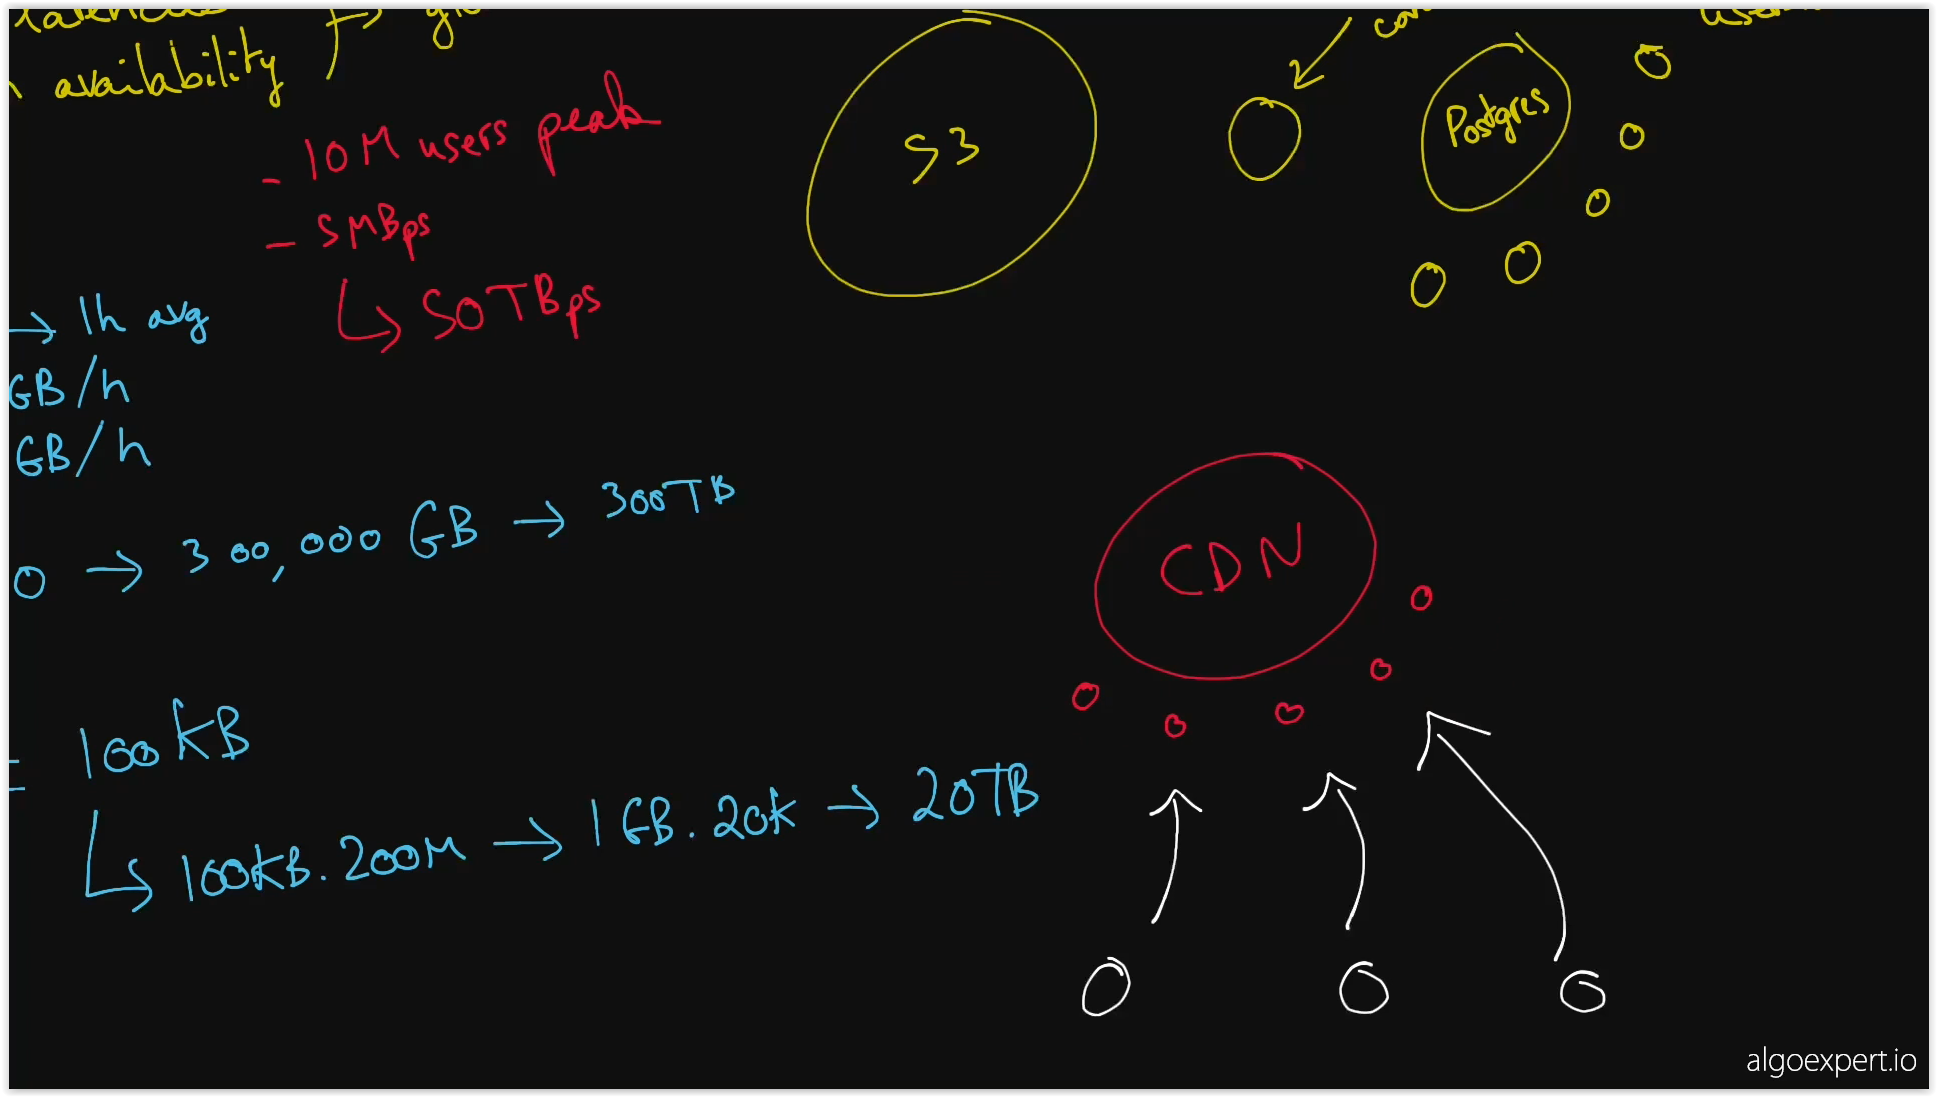 availability
- 10M users peak
- 5MBps
↳ 50TBps
→ 1h avg
GB/h
GB/h
0 → 300,000 GB → 300TB
100KB
↳ 100KB.200M → 1GB.20K → 20TB
S3
Postgres
CDN
algoexpert.io